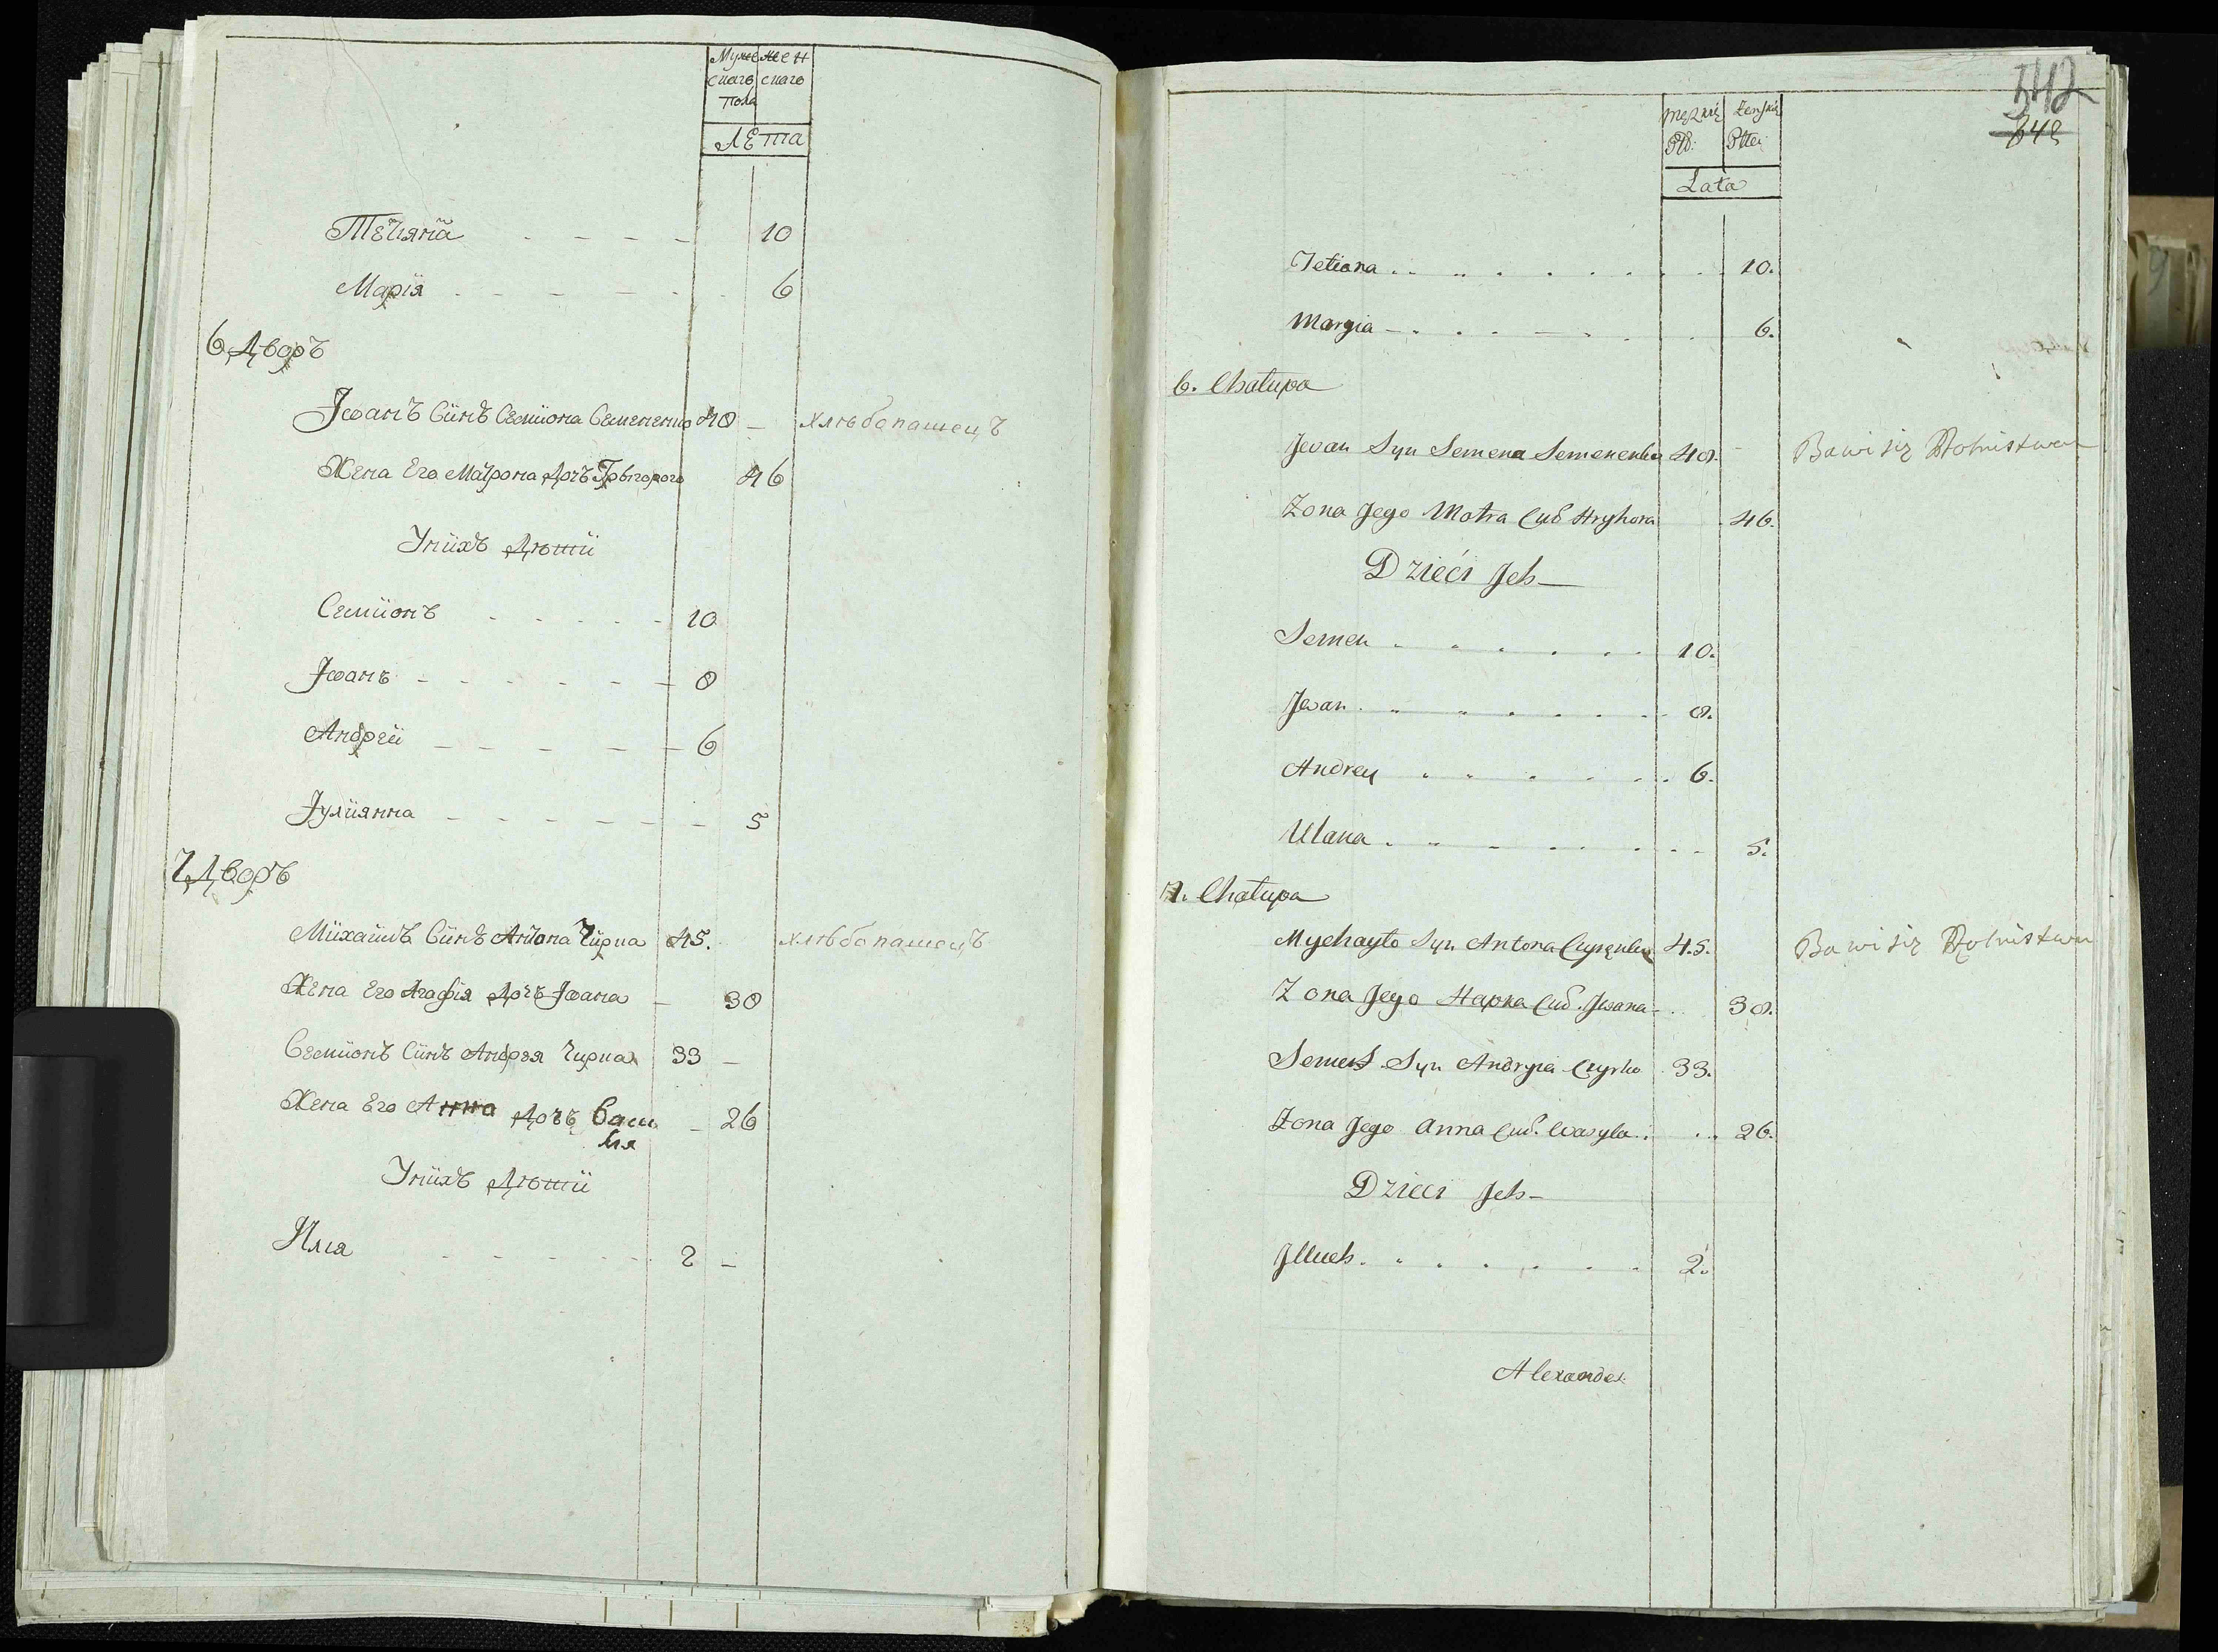 Муже жен
скаго скаго
пола
Лета
Тетяна 10
Марія 6
6 Дворъ
Іванъ Сiинъ Семiiона Семененко 40 — хлѣбопашецъ
Жена Его Матрона Дочъ Грыгорого 46
Унiихъ Дѣтiи
Семiионъ 10
Іванъ 8
Андреiи 6
Іулiиянна 5
7 Дворъ
Мiихаiилъ Сiинъ Антона Чiирка 45. хлѣбопашецъ
Жена Его Агафiя Дочъ Iвана — 30
Семiионъ Сiинъ Андрея Чирка 33 —
Жена Его Анна Дочъ Васи — 26
лiя
Унiихъ Дѣтiи
Илiя 2 —
542
Męzkiej Żenskiej
Płci
Lata
Tetiana 10.
Maryia 6.
6. Chałupa
Jwan Syn Semena Semenenko 40. Bawi się Rolnistwem
Żona Jego Motra Cud Hryhora 46.
Dzieci Jch
Semen 10.
Jwan 8.
Andrey 6.
Ulana 5.
7. Chałupa
Mychayło Syn Antona 45. Bawi się Rolnistwem
Żona Jego Hapka Cud. Jwana 30.
Semen Syn Andryia Czyrko 33.
Żona Jego Anna Cud. Wasyla 26.
Dzieci Jch
Jlluch 2.
Alexander